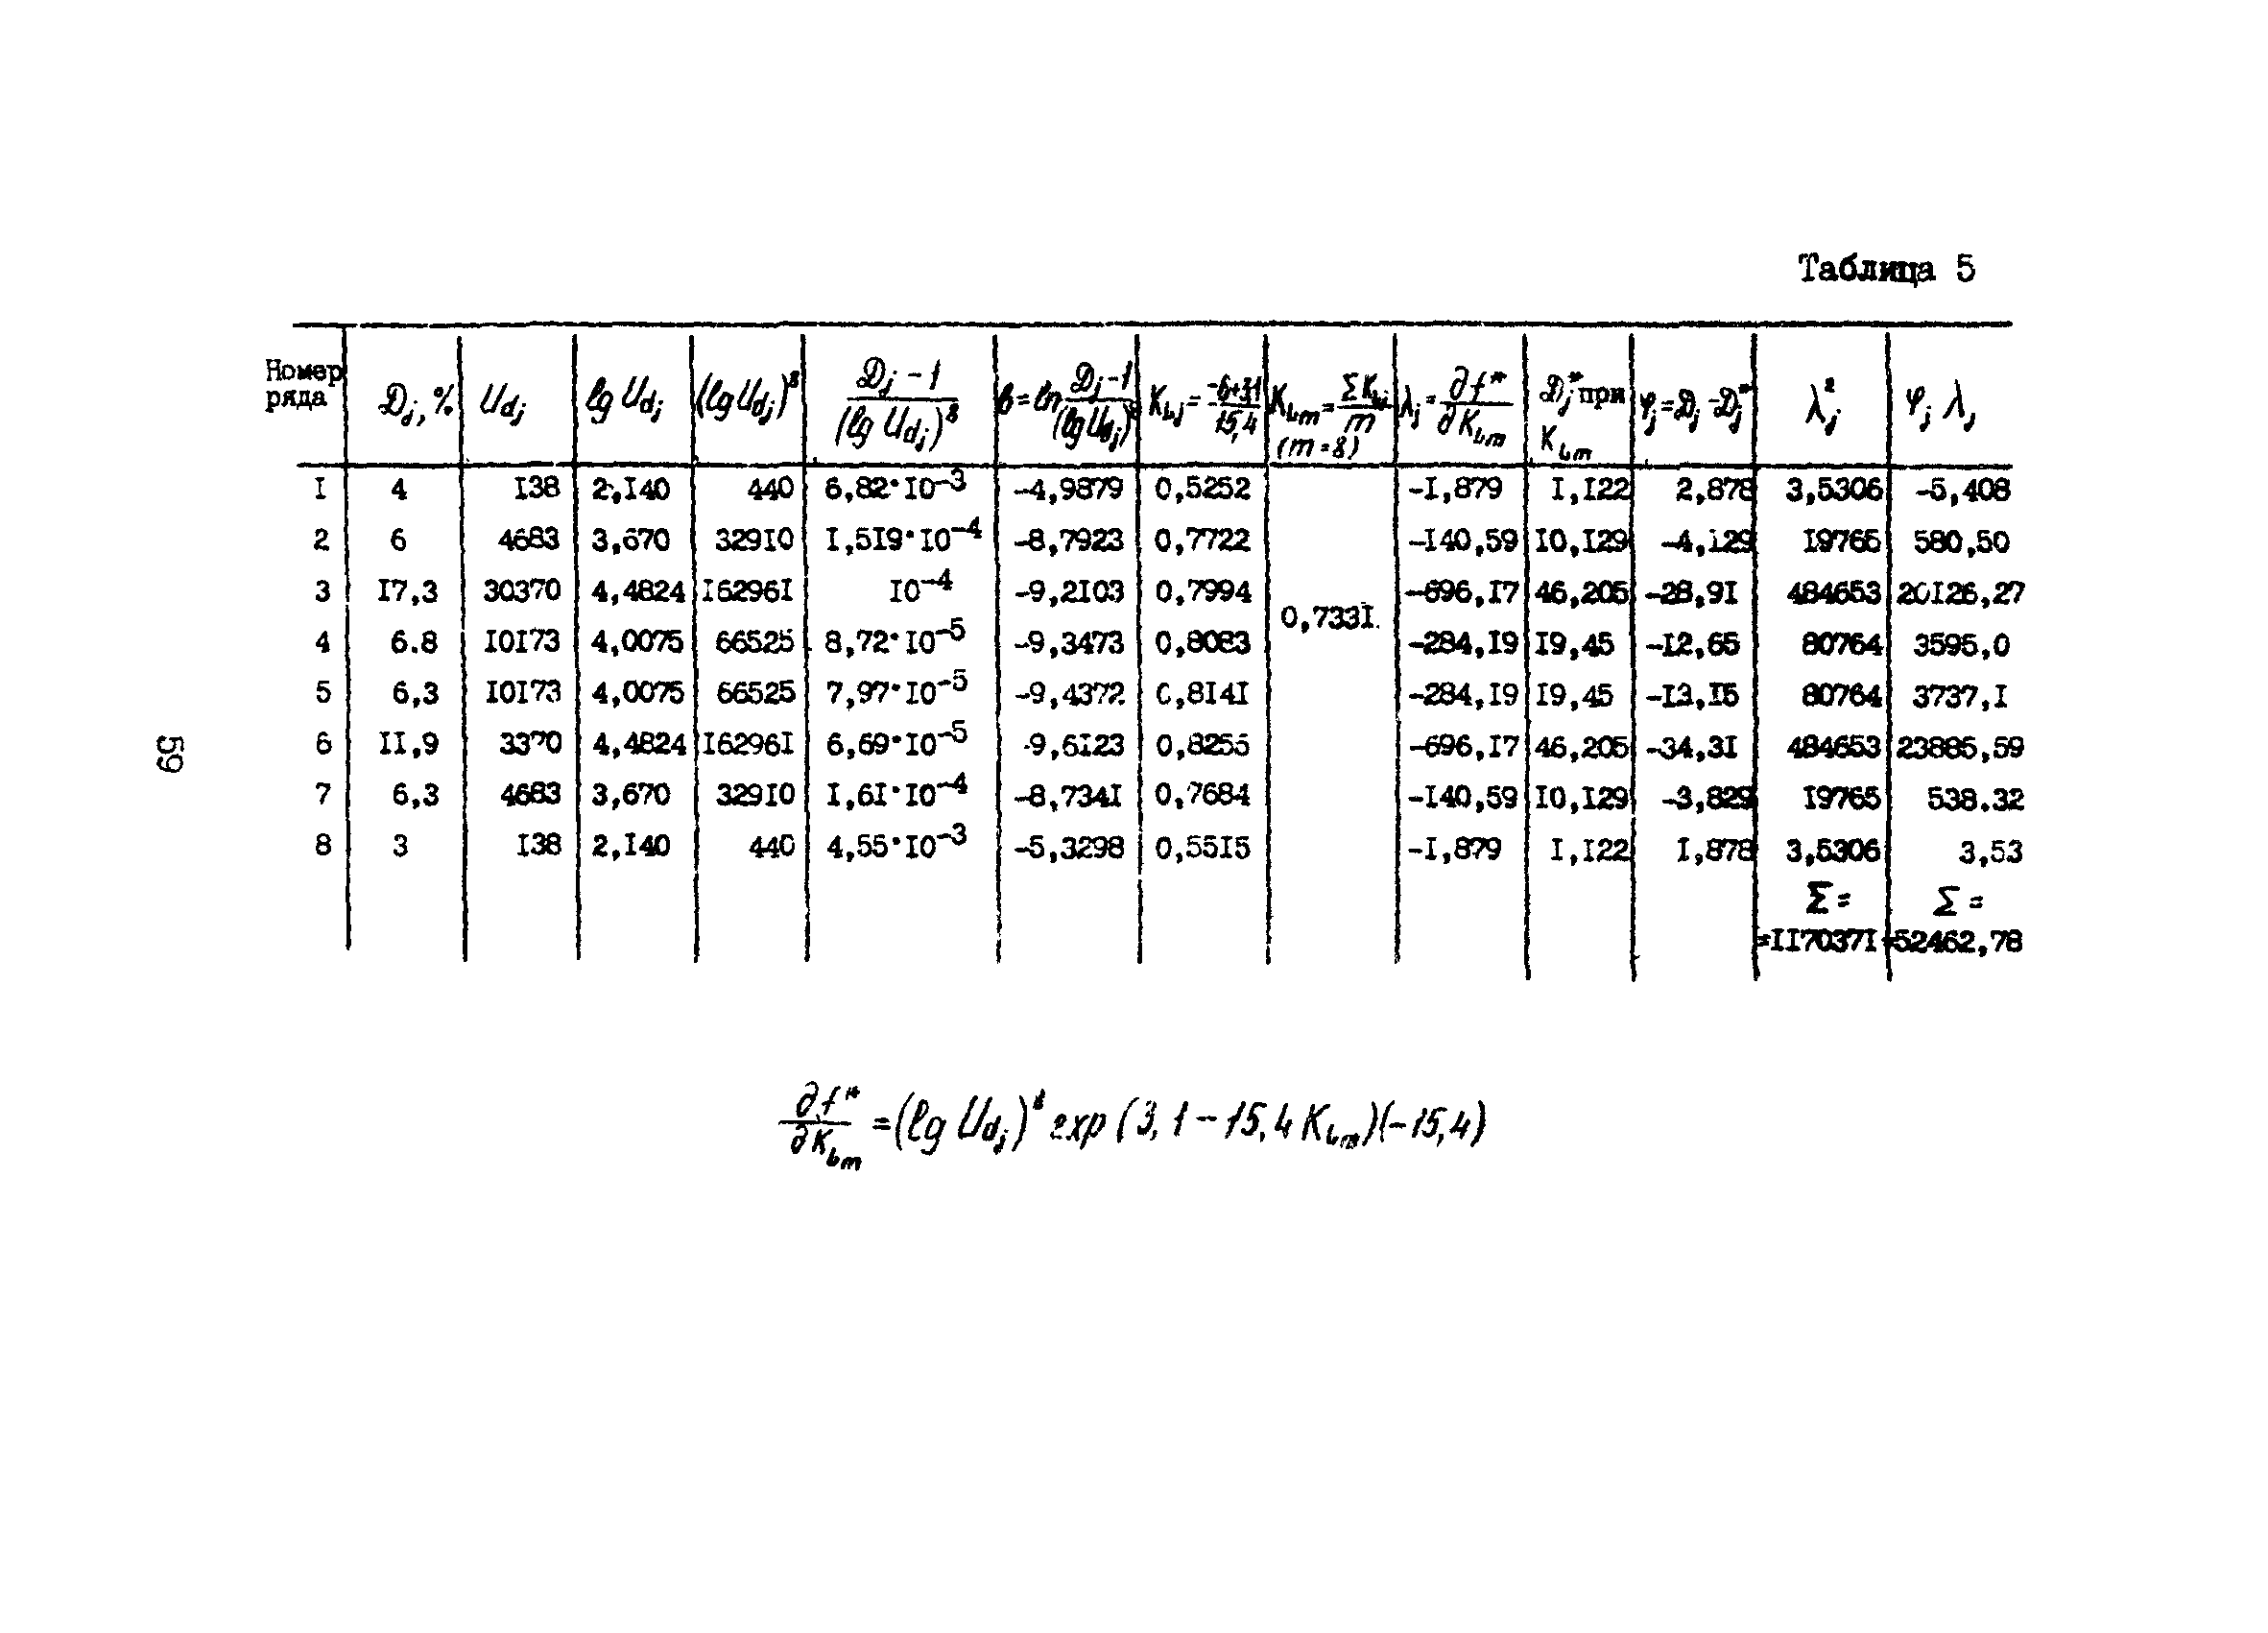 Таблица 5
Номер ряда | Dj, % | Udj | lg Udj | (lg Udj)⁸ | (Dj - 1)/(lg Udj)⁸ | b = ln (Dj - 1)/(lg Udj)⁸ | Kbj = (-b+3,1)/15,4 | Kbm = ΣKbj/m (m = 8) | λj = ∂f*/∂Kbm | Dj* при Kbm | φj = Dj - Dj* | λj² | φj λj
1 | 4 | 138 | 2,140 | 440 | 6,82·10⁻³ | -4,9879 | 0,5252 | | -1,879 | 1,122 | 2,878 | 3,5306 | -5,408
2 | 6 | 4683 | 3,670 | 32910 | 1,519·10⁻⁴ | -8,7923 | 0,7722 | | -140,59 | 10,129 | -4,129 | 19765 | 580,50
3 | 17,3 | 30370 | 4,4824 | 162961 | 10⁻⁴ | -9,2103 | 0,7994 | 0,7331 | -696,17 | 46,205 | -28,91 | 484653 | 20126,27
4 | 6.8 | 10173 | 4,0075 | 66525 | 8,72·10⁻⁵ | -9,3473 | 0,8083 | | -284,19 | 19,45 | -12,65 | 80764 | 3595,0
5 | 6,3 | 10173 | 4,0075 | 66525 | 7,97·10⁻⁵ | -9,4372 | 0,8141 | | -284,19 | 19,45 | -13,15 | 80764 | 3737,1
6 | 11,9 | 3370 | 4,4824 | 162961 | 6,69·10⁻⁵ | -9,6123 | 0,8255 | | -696,17 | 46,205 | -34,31 | 484653 | 23885,59
7 | 6,3 | 4683 | 3,670 | 32910 | 1,61·10⁻⁴ | -8,7341 | 0,7684 | | -140,59 | 10,129 | -3,829 | 19765 | 538.32
8 | 3 | 138 | 2,140 | 440 | 4,55·10⁻³ | -5,3298 | 0,5515 | | -1,879 | 1,122 | 1,878 | 3,5306 | 3,53
Σ = | Σ =
=1170371 | =52462,78
∂f*/∂Kbm = (lg Udj)⁸ exp (3,1 - 15,4 Kbm)(-15,4)
59